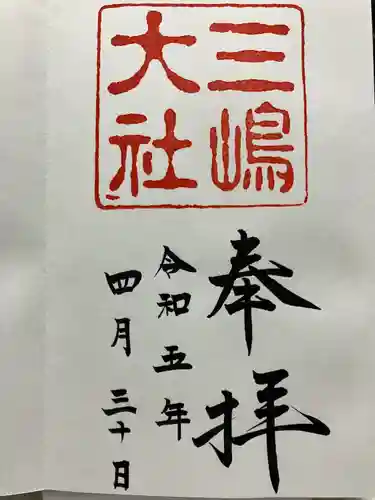 三嶋
大社
奉拝
令和五年
四月三十日